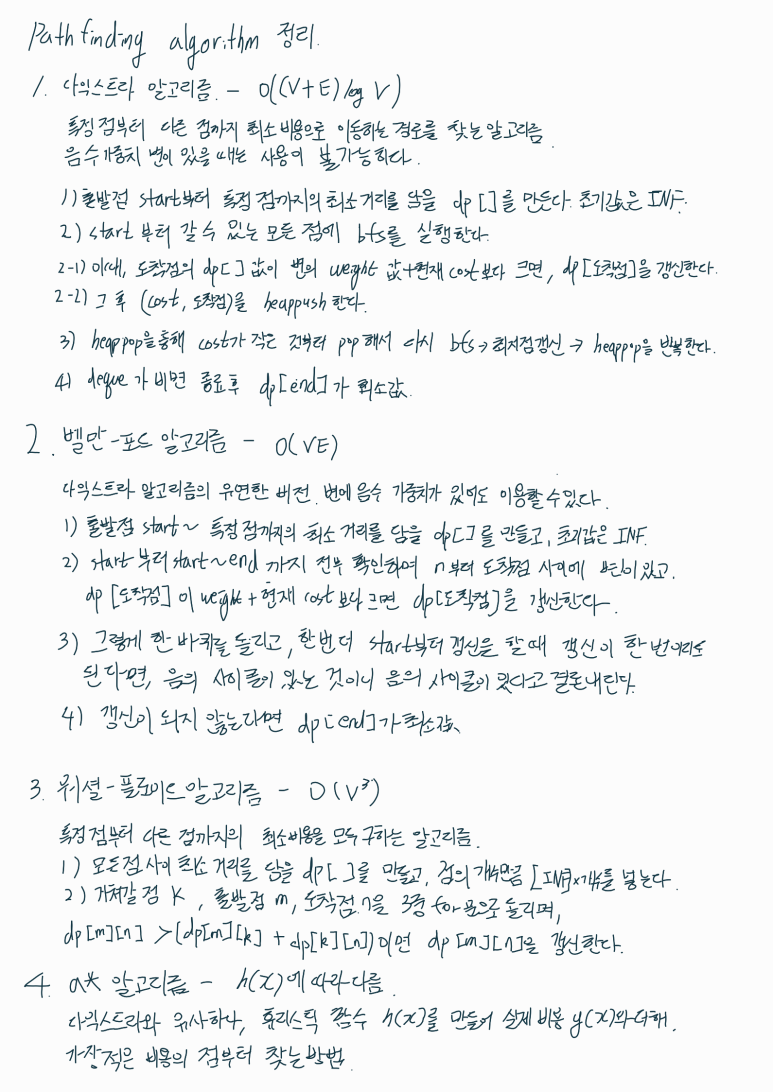 Path finding algorithm 정리.
1. 다익스트라 알고리즘. - O((V+E) log V)
특정 점부터 다른 점까지 최소비용으로 이동하는 경로를 찾는 알고리즘.
음수 가중치 변이 있을 때는 사용이 불가능하다.
1) 출발점 start부터 특정 점까지의 최소 거리를 담을 dp [ ]를 만든다. 초기값은 INF.
2) start 부터 갈 수 있는 모든 점에 bfs를 실행한다.
2-1) 이때, 도착점의 dp[ ] 값이 변의 weight 값+현재 cost보다 크면, dp[도착점]을 갱신한다.
2-2) 그 후 (cost, 도착점)을 heappush 한다.
3) heappop을 통해 cost가 작은 것부터 pop 해서 다시 bfs → 최저점갱신 → heappop을 반복한다.
4) deque 가 비면 종료후 dp[end]가 최소값.
2. 벨만-포드 알고리즘 - O(VE)
다익스트라 알고리즘의 유연한 버전. 변에 음수 가중치가 있어도 이용할 수 있다.
1) 출발점 start~ 특정 점까지의 최소 거리를 담을 dp[ ]를 만들고, 초기값은 INF.
2) start 부터 start~end 까지 전부 확인하며 n부터 도착점 사이에 변이 있고,
dp [도착점] 이 weight + 현재 cost 보다 크면 dp[도착점]을 갱신한다.
3) 그렇게 한 바퀴를 돌리고, 한번 더 start부터 갱신을 할 때 갱신이 한 번이라도
된다면, 음의 사이클이 있는 것이니 음의 사이클이 있다고 결론내린다.
4) 갱신이 되지 않는다면 dp[end]가 최소값.
3. 워셜-플로이드 알고리즘 - O(V³)
특정 점부터 다른 점까지의 최소비용을 모두 구하는 알고리즘.
1) 모든 점 사이 최소 거리를 담을 dp[ ]를 만들고, 점의 개수만큼 [INF]×개수를 넣는다.
2) 거쳐갈 점 k, 출발점 m, 도착점 n을 3중 for문으로 돌리며,
dp[m][n] > (dp[m][k] + dp[k][n])이면 dp[m][n]을 갱신한다.
4. a* 알고리즘 - h(x)에 따라 다름.
다익스트라와 유사하나, 휴리스틱 함수 h(x)를 만들어 실제 비용 y(x)와 더해,
가장 적은 비용의 점부터 찾는 방법.